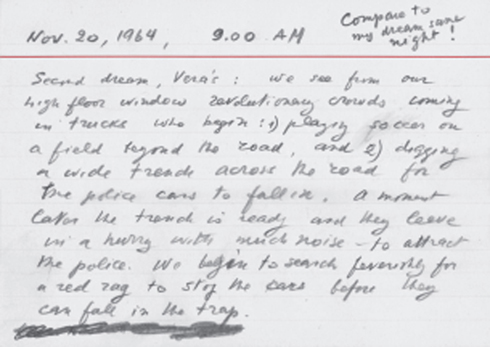 Nov. 20, 1964, 9.00 AM
Compare to
my dream same
night!
Second dream, Vera's: we see from our
high floor window revolutionary crowds coming
in trucks who begin: 1) playing soccer on
a field beyond the road, and 2) digging
a wide trench across the road for
the police cars to fall in. A moment
later the trench is ready and they leave
in a hurry with much noise – to attract
the police. We began to search feverishly for
a red rag to stop the cars before they
can fall in the trap.